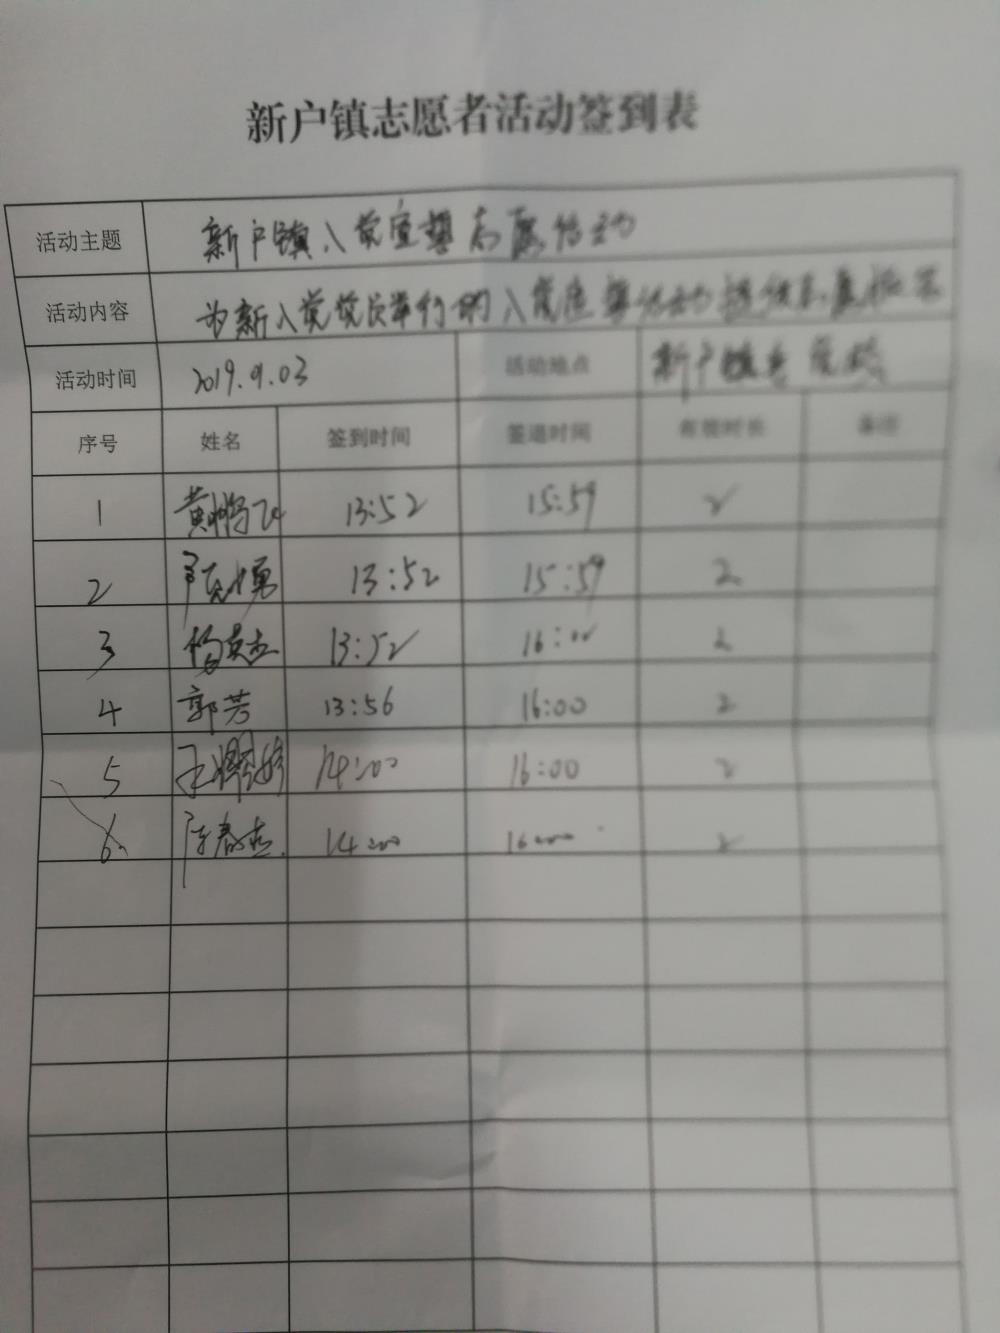 新户镇志愿者活动签到表
活动主题 新户镇入党宣誓志愿活动
活动内容 为新入党党员举行的入党宣誓活动提供志愿服务
活动时间 2019.9.03 活动地点 新户镇党校
序号 姓名 签到时间 签退时间 有效时长 备注
1 黄鹏飞 13:52 15:59 2
2 13:52 15:59 2
3 杨英杰 13:52 16:00 2
4 郭芳 13:56 16:00 2
5 14:00 16:00 2
6 陈春杰 14:00 16:00 2